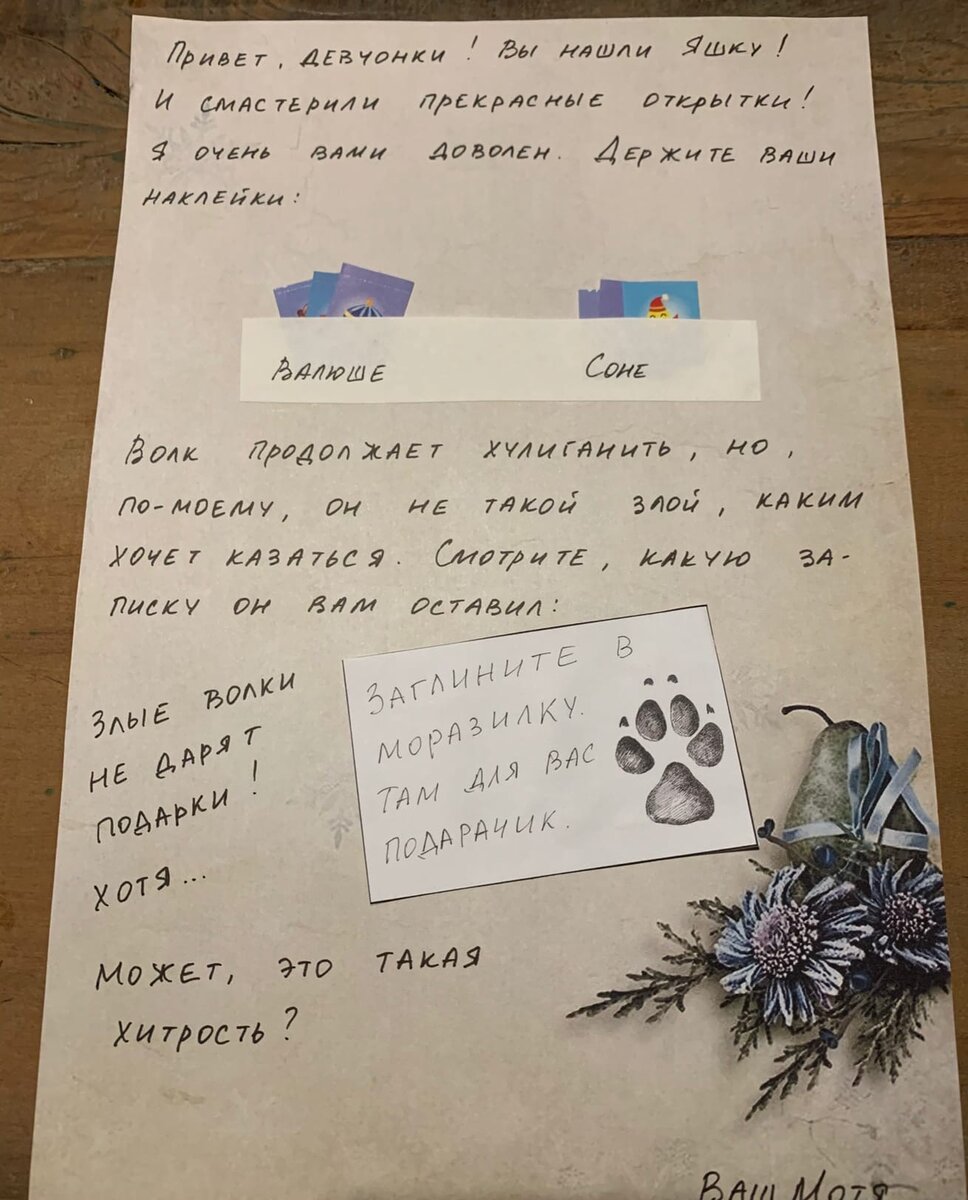 Привет, девчонки! Вы нашли Яшку!
И смастерили прекрасные открытки!
Я очень вами доволен. Держите ваши
наклейки:
Валюше
Соне
Волк продолжает хулиганить, но,
по-моему, он не такой злой, каким
хочет казаться. Смотрите, какую за-
писку он вам оставил:
Злые волки
не дарят
подарки!
Хотя...
Заглините в
моразилку.
Там для вас
подарачик.
Может, это такая
хитрость?
Ваш Мотя